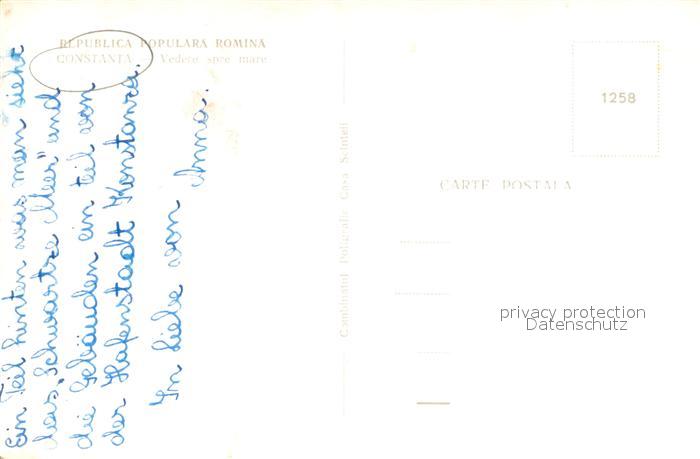 REPUBLICA POPULARĂ ROMÎNĂ
CONSTANŢA Vedere spre mare
Ein Teil hinten was man sieht
das „Schwartze Meer" und
die Gebäuden ein teil von
der Hafenstadt Konstanza.
In Liebe von Anna.
Combinatul Poligrafic Casa Scînteii
1258
CARTE POSTALA
privacy protection
Datenschutz